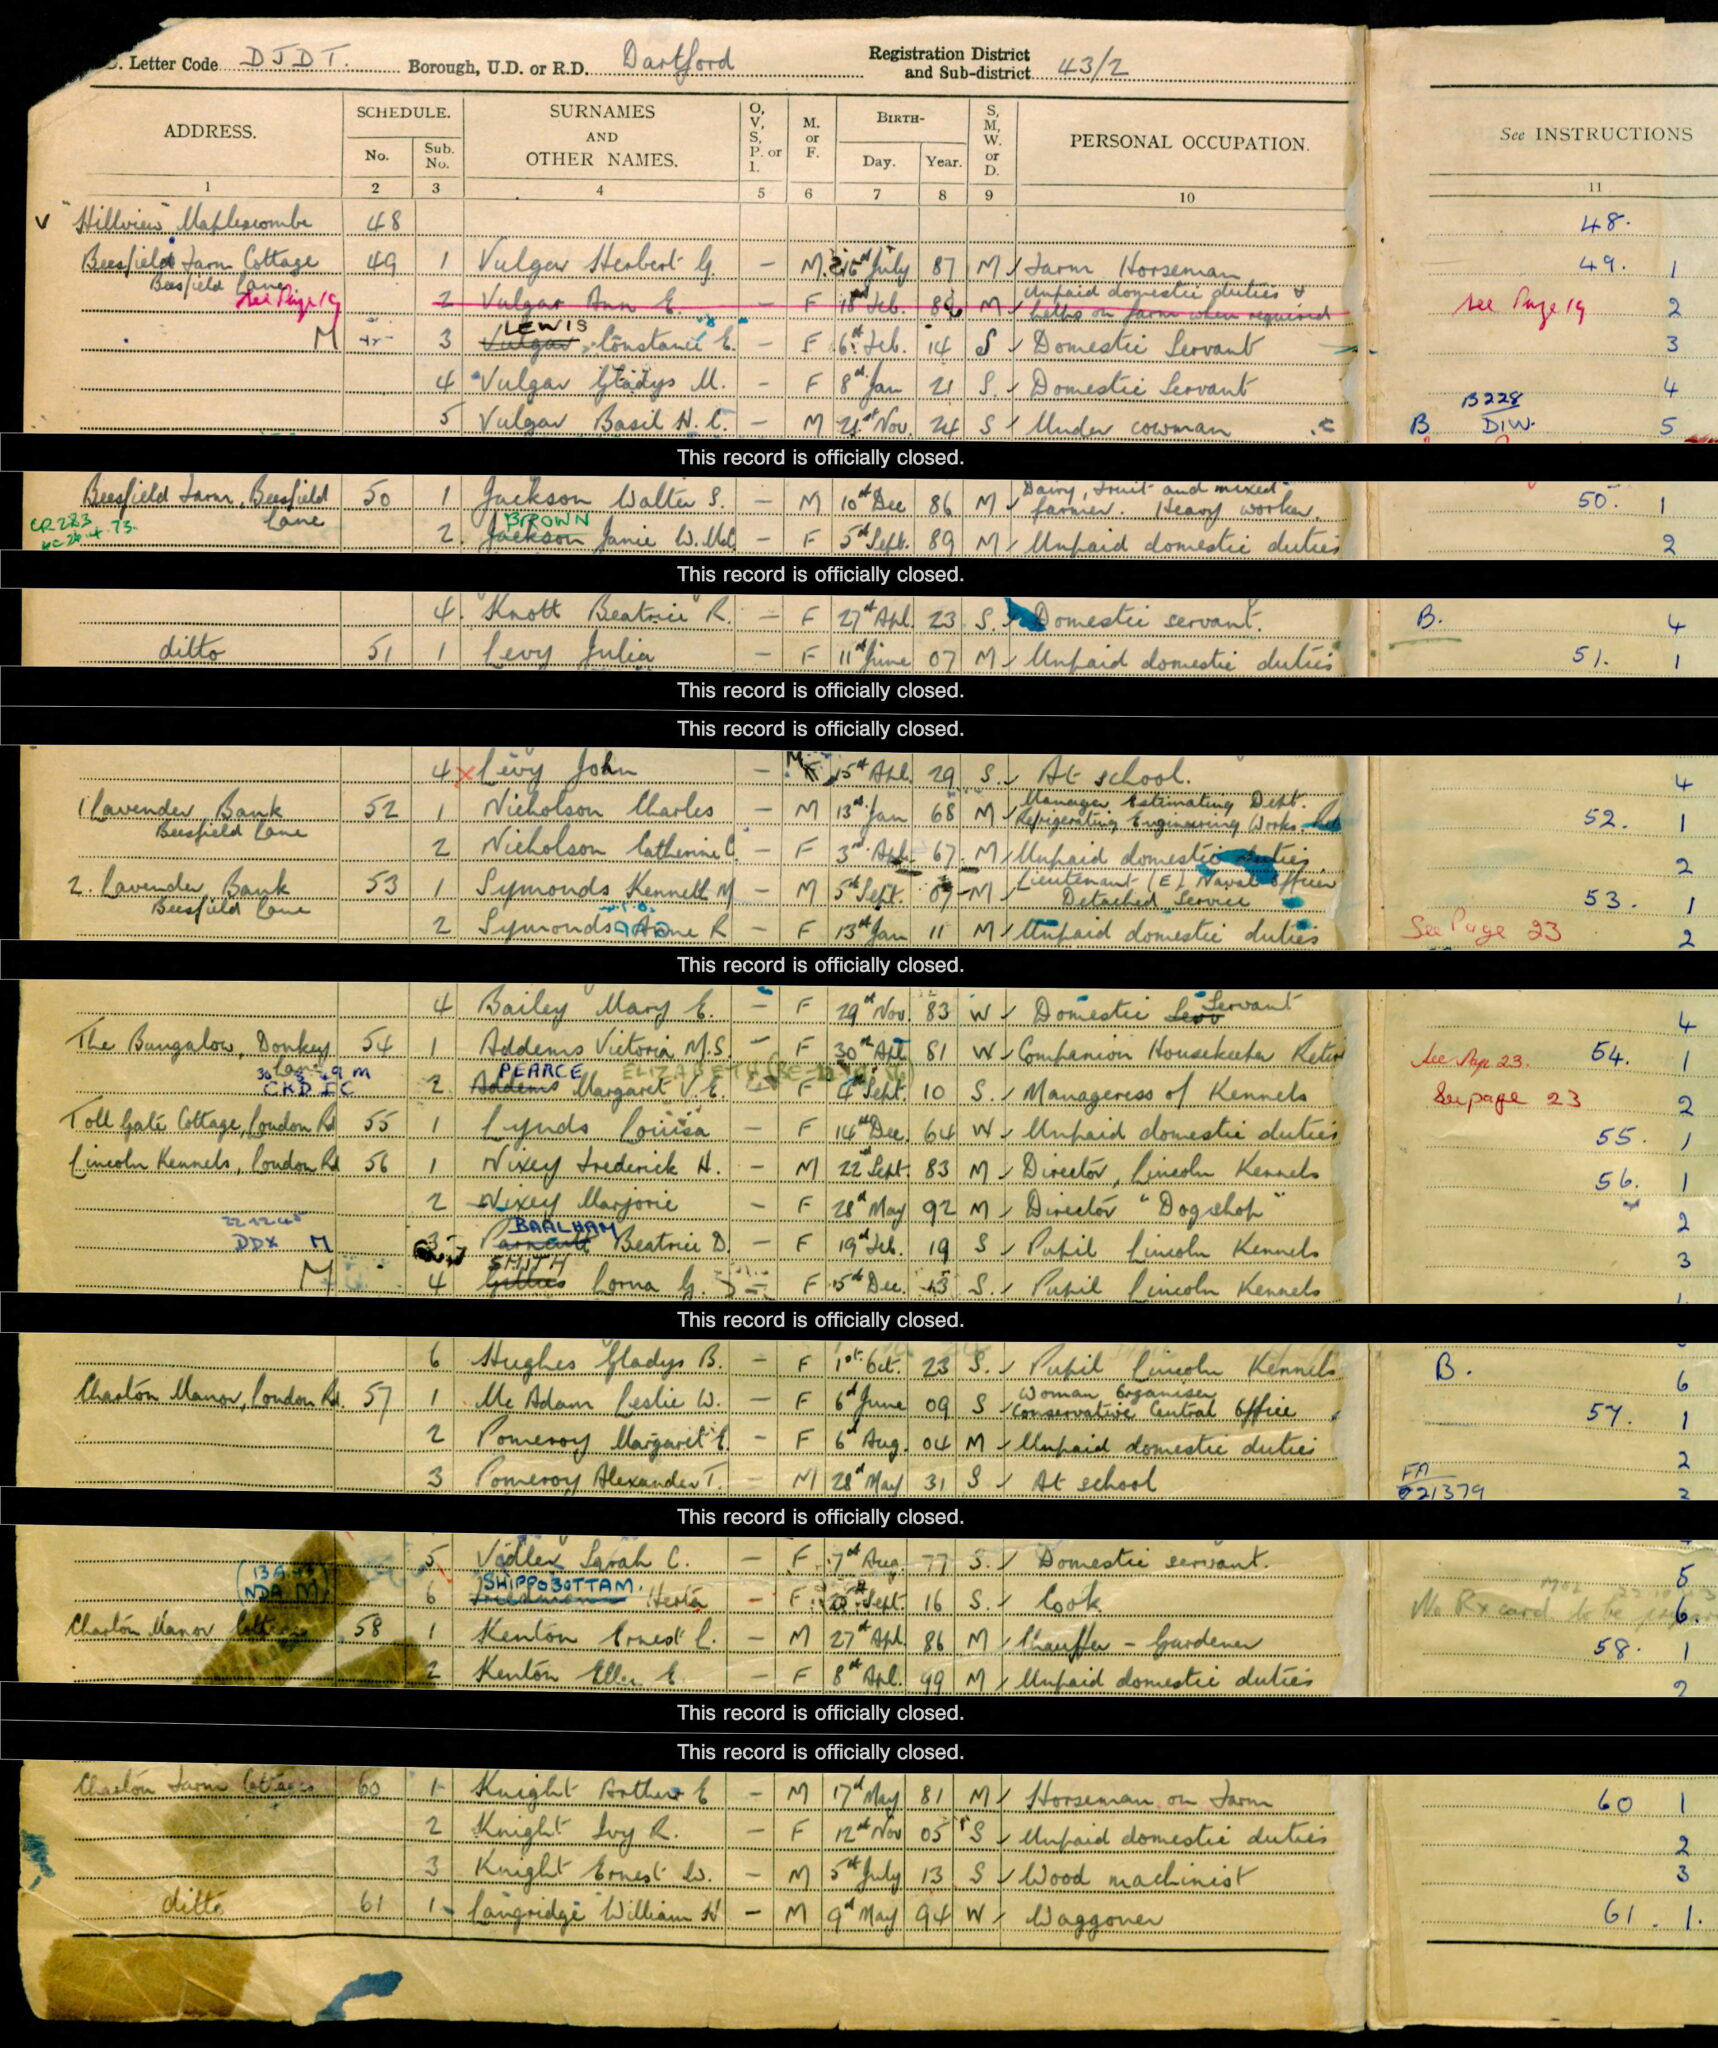 Letter Code D J D T. Borough, U.D. or R.D. Dartford Registration District and Sub-district 43/2
ADDRESS. SCHEDULE. No. Sub. No. SURNAMES AND OTHER NAMES. O, V, S, P. or I. M. or F. BIRTH- Day. Year. S, M, W. or D. PERSONAL OCCUPATION. See INSTRUCTIONS
1 2 3 4 5 6 7 8 9 10 11
V "Hillview" Maplescombe 48 48.
Beesfield Farm Cottage 49 1 Vulgar Herbert G. – M 26th July 87 M Farm Horseman 49. 1
Beesfield Lane
See Page 19 2 Vulgar Ann E. – F 18th Feb. 86 M Unpaid domestic duties & helps on farm when required See Page 19 2
LEWIS
M 3 Vulgar Constance E. – F 6th Feb. 14 S Domestic Servant 3
4 Vulgar Gladys M. – F 8th Jan 21 S. Domestic Servant 4
B228
5 Vulgar Basil H. C. – M 21st Nov. 24 S Under cowman B DIW. 5
This record is officially closed.
Beesfield Farm, Beesfield Lane 50 1 Jackson Walter S. – M 10th Dec 86 M Dairy, fruit and mixed farmer. Heavy worker. 50. 1
CR283
BROWN
2. Jackson Janie W. Mc – F 5th Sept. 89 M Unpaid domestic duties 2
This record is officially closed.
4. Knott Beatrice R. – F 27th Apl. 23 S. Domestic servant. B. 4
ditto 51 1 Levy Julia – F 11th June 07 M Unpaid domestic duties 51. 1
This record is officially closed.
This record is officially closed.
4 x Levy John – M 15th Apl. 29 S. At school. 4
1 Lavender Bank 52 1 Nicholson Charles – M 13th Jan 68 M Manager Estimating Dept. Refrigerating Engineering Works. 52. 1
Beesfield Lane
2 Nicholson Catherine C. – F 3rd Apl. 67 M Unpaid domestic duties 2
2. Lavender Bank 53 1 Symonds Kenneth M – M 5th Sept. 07 M Lieutenant (E) Naval Officer Detached Service 53. 1
Beesfield Lane
2 Symonds Anne R – F 13th Jan 11 M Unpaid domestic duties See Page 23 2
This record is officially closed.
4 Bailey Mary E. – F 29th Nov. 83 W Domestic Servant 4
The Bungalow, Donkey Lane 54 1 Addems Victoria M.S. – F 30th Apl 81 W Companion Housekeeper See Page 23. 54. 1
PEARCE ELIZABETH
CKD IC 2 Addems Margaret V. E. F 4th Sept. 10 S. Manageress of Kennels See page 23 2
Toll Gate Cottage, London Rd 55 1 Lynds Louisa – F 14th Dec. 64 W Unpaid domestic duties 55. 1
Lincoln Kennels, London Rd 56 1 Nixey Frederick H. – M 22nd Sept. 83 M Director, Lincoln Kennels 56. 1
2 Nixey Marjorie – F 28th May 92 M Director "Dogshop" 2
22.12.45 BAALHAM
DDX M 3 Beatrice D. – F 19th Feb. 19 S Pupil Lincoln Kennels 3
SMITH
M 4 Gillies Lorna G. – F 15th Dec. 13 S. Pupil Lincoln Kennels
This record is officially closed.
6 Hughes Gladys B. – F 1st Oct. 23 S. Pupil Lincoln Kennels B. 6
Charton Manor, London Rd. 57 1 Mc Adam Leslie W. – F 6th June 09 S Woman Organiser Conservative Central Office 57. 1
2 Pomeroy Margaret E. – F 6th Aug. 04 M Unpaid domestic duties 2
3 Pomeroy Alexander T. – M 28th May 31 S At school FA 21379 3
This record is officially closed.
5 Sarah C. – F 7th Aug 77 S. Domestic servant. 5
NDA M. SHIPPOBOTTAM.
6 Herta – F Sept. 16 S. Cook No Rx card to be 6.
Charton Manor 58 1 Kenton Ernest C. – M 27th Apl. 86 M Chauffer - Gardener 58. 1
2 Kenton Ellen E. – F 8th Apl. 99 M Unpaid domestic duties 2
This record is officially closed.
This record is officially closed.
Charton Farm Cottages 60 1 Knight Arthur E – M 17th May 81 M Horseman on Farm 60 1
2 Knight Ivy R. – F 12th Nov 05 S Unpaid domestic duties 2
3 Knight Ernest W. – M 5th July 13 S Wood machinist 3
ditto 61 1 Langridge William H – M 9th May 94 W Waggoner 61. 1.